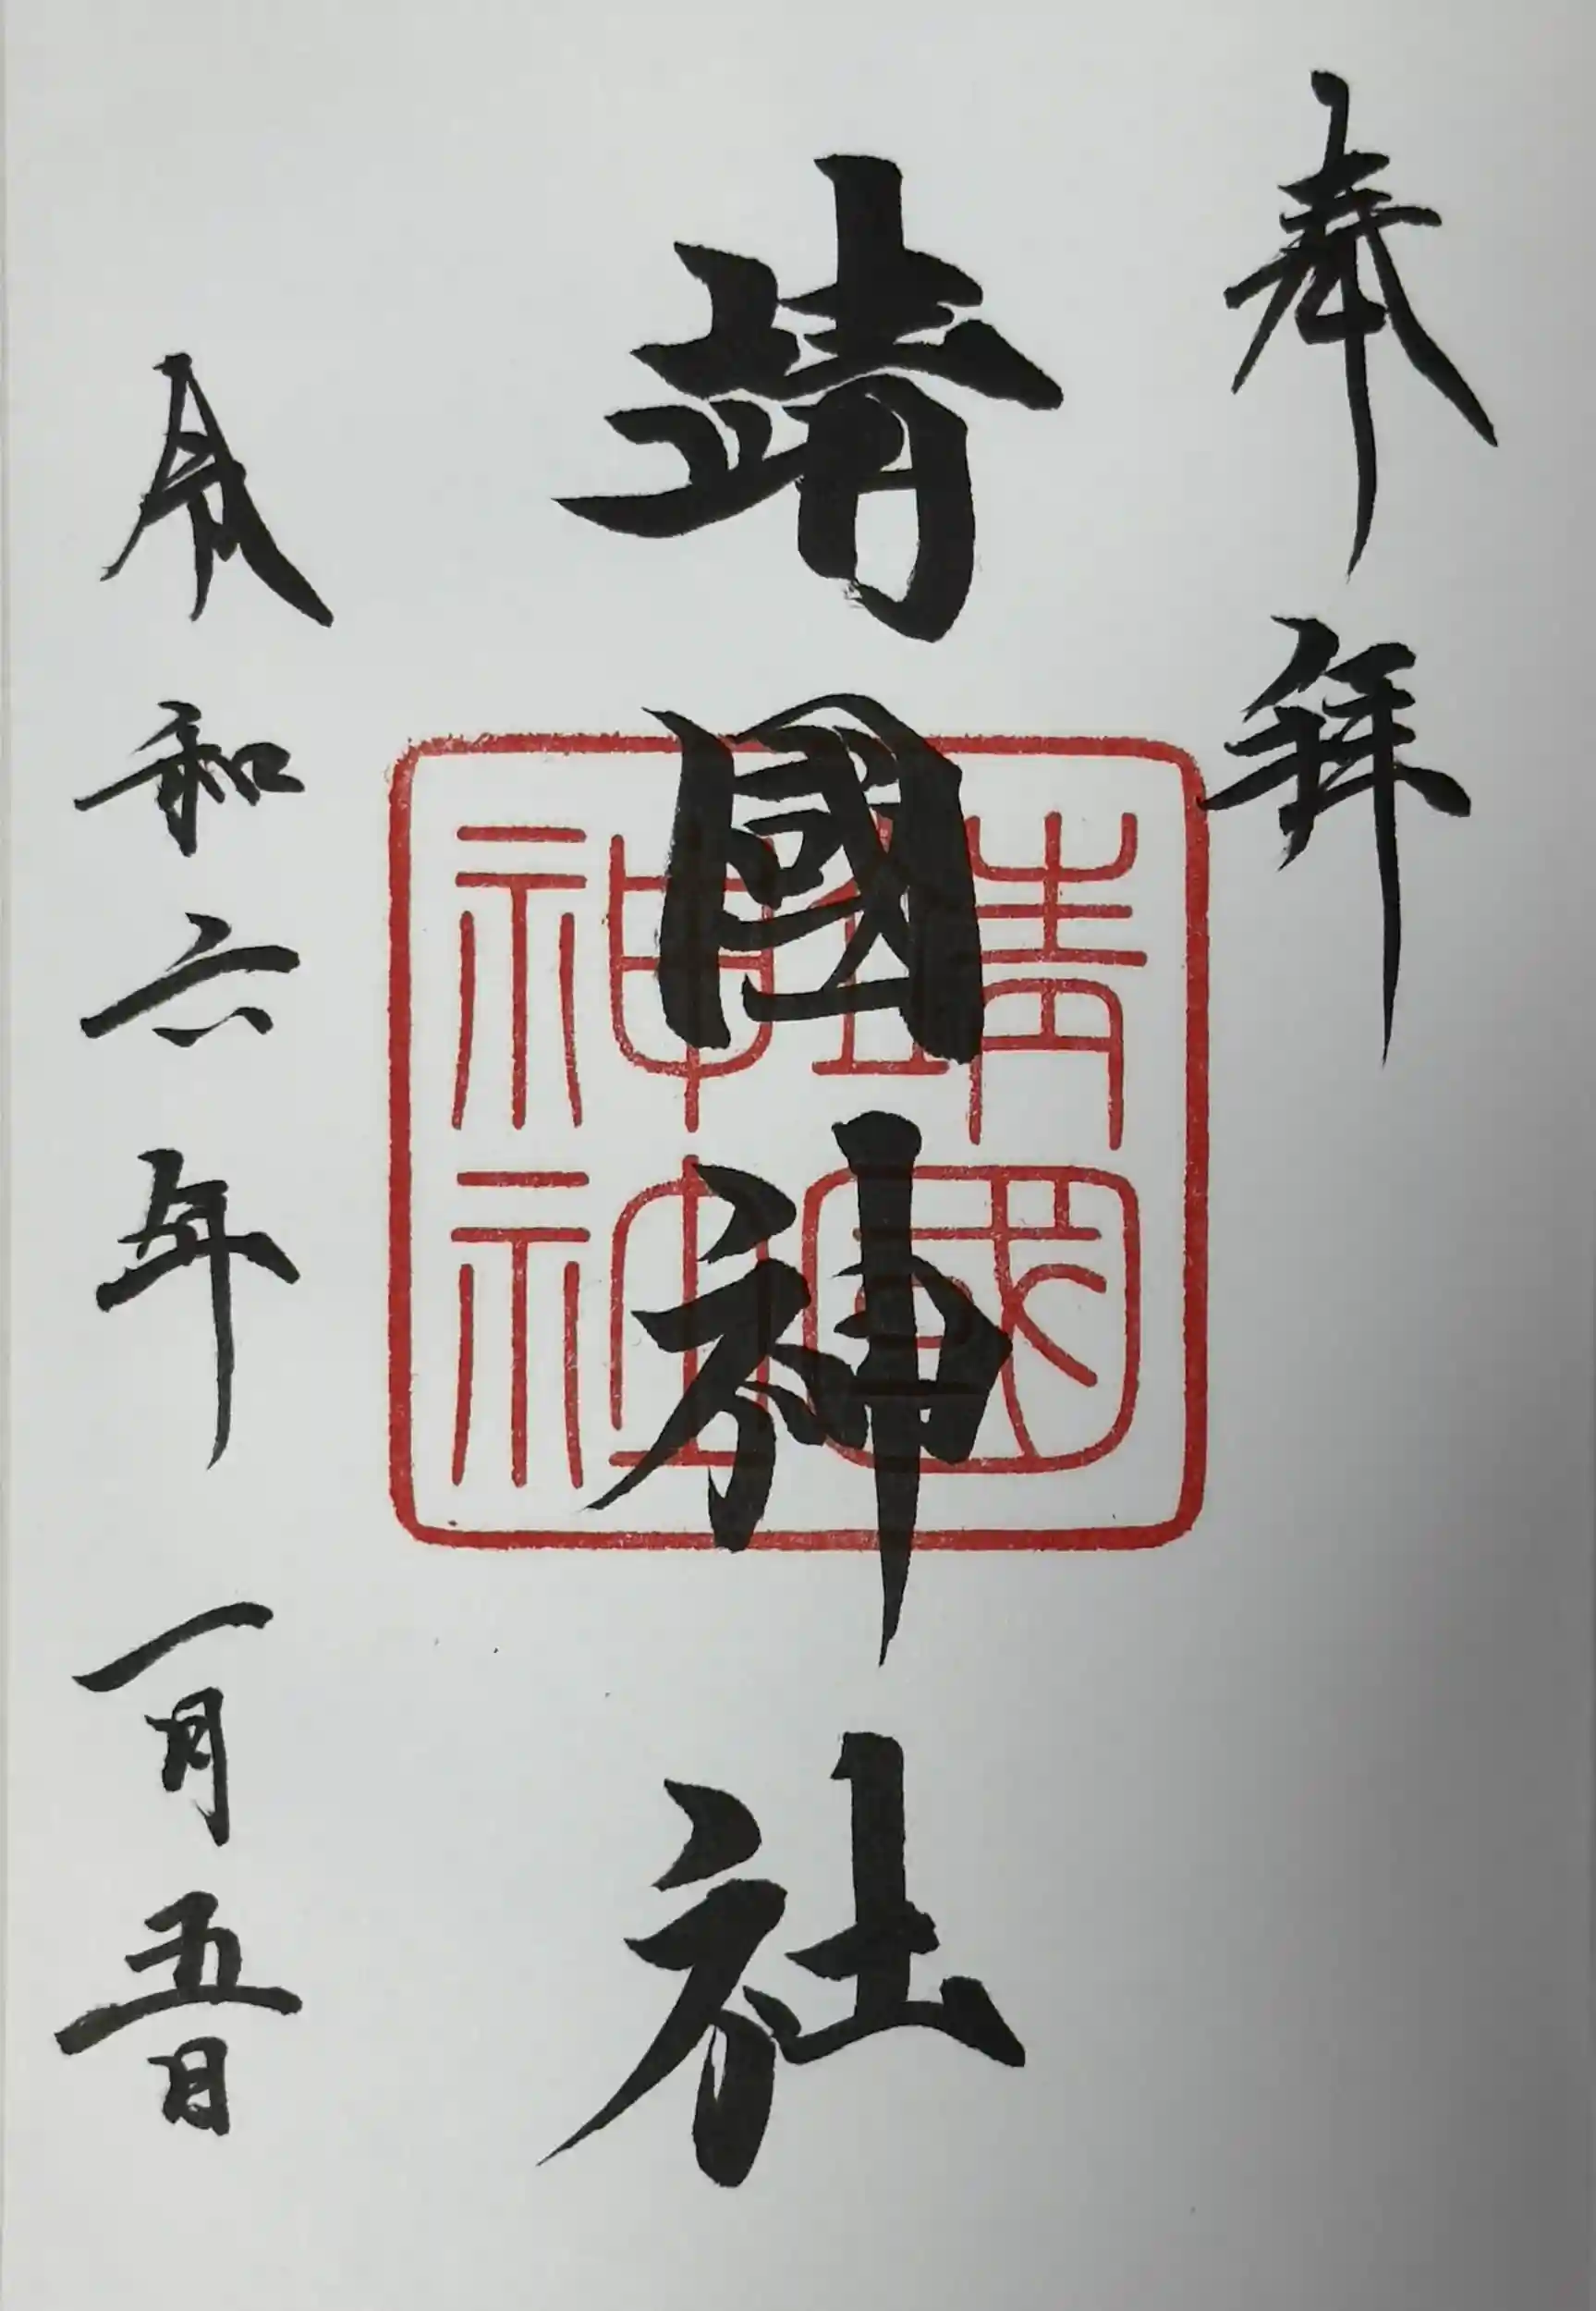 奉拝
靖國神社
靖國神社
令和六年一月五日